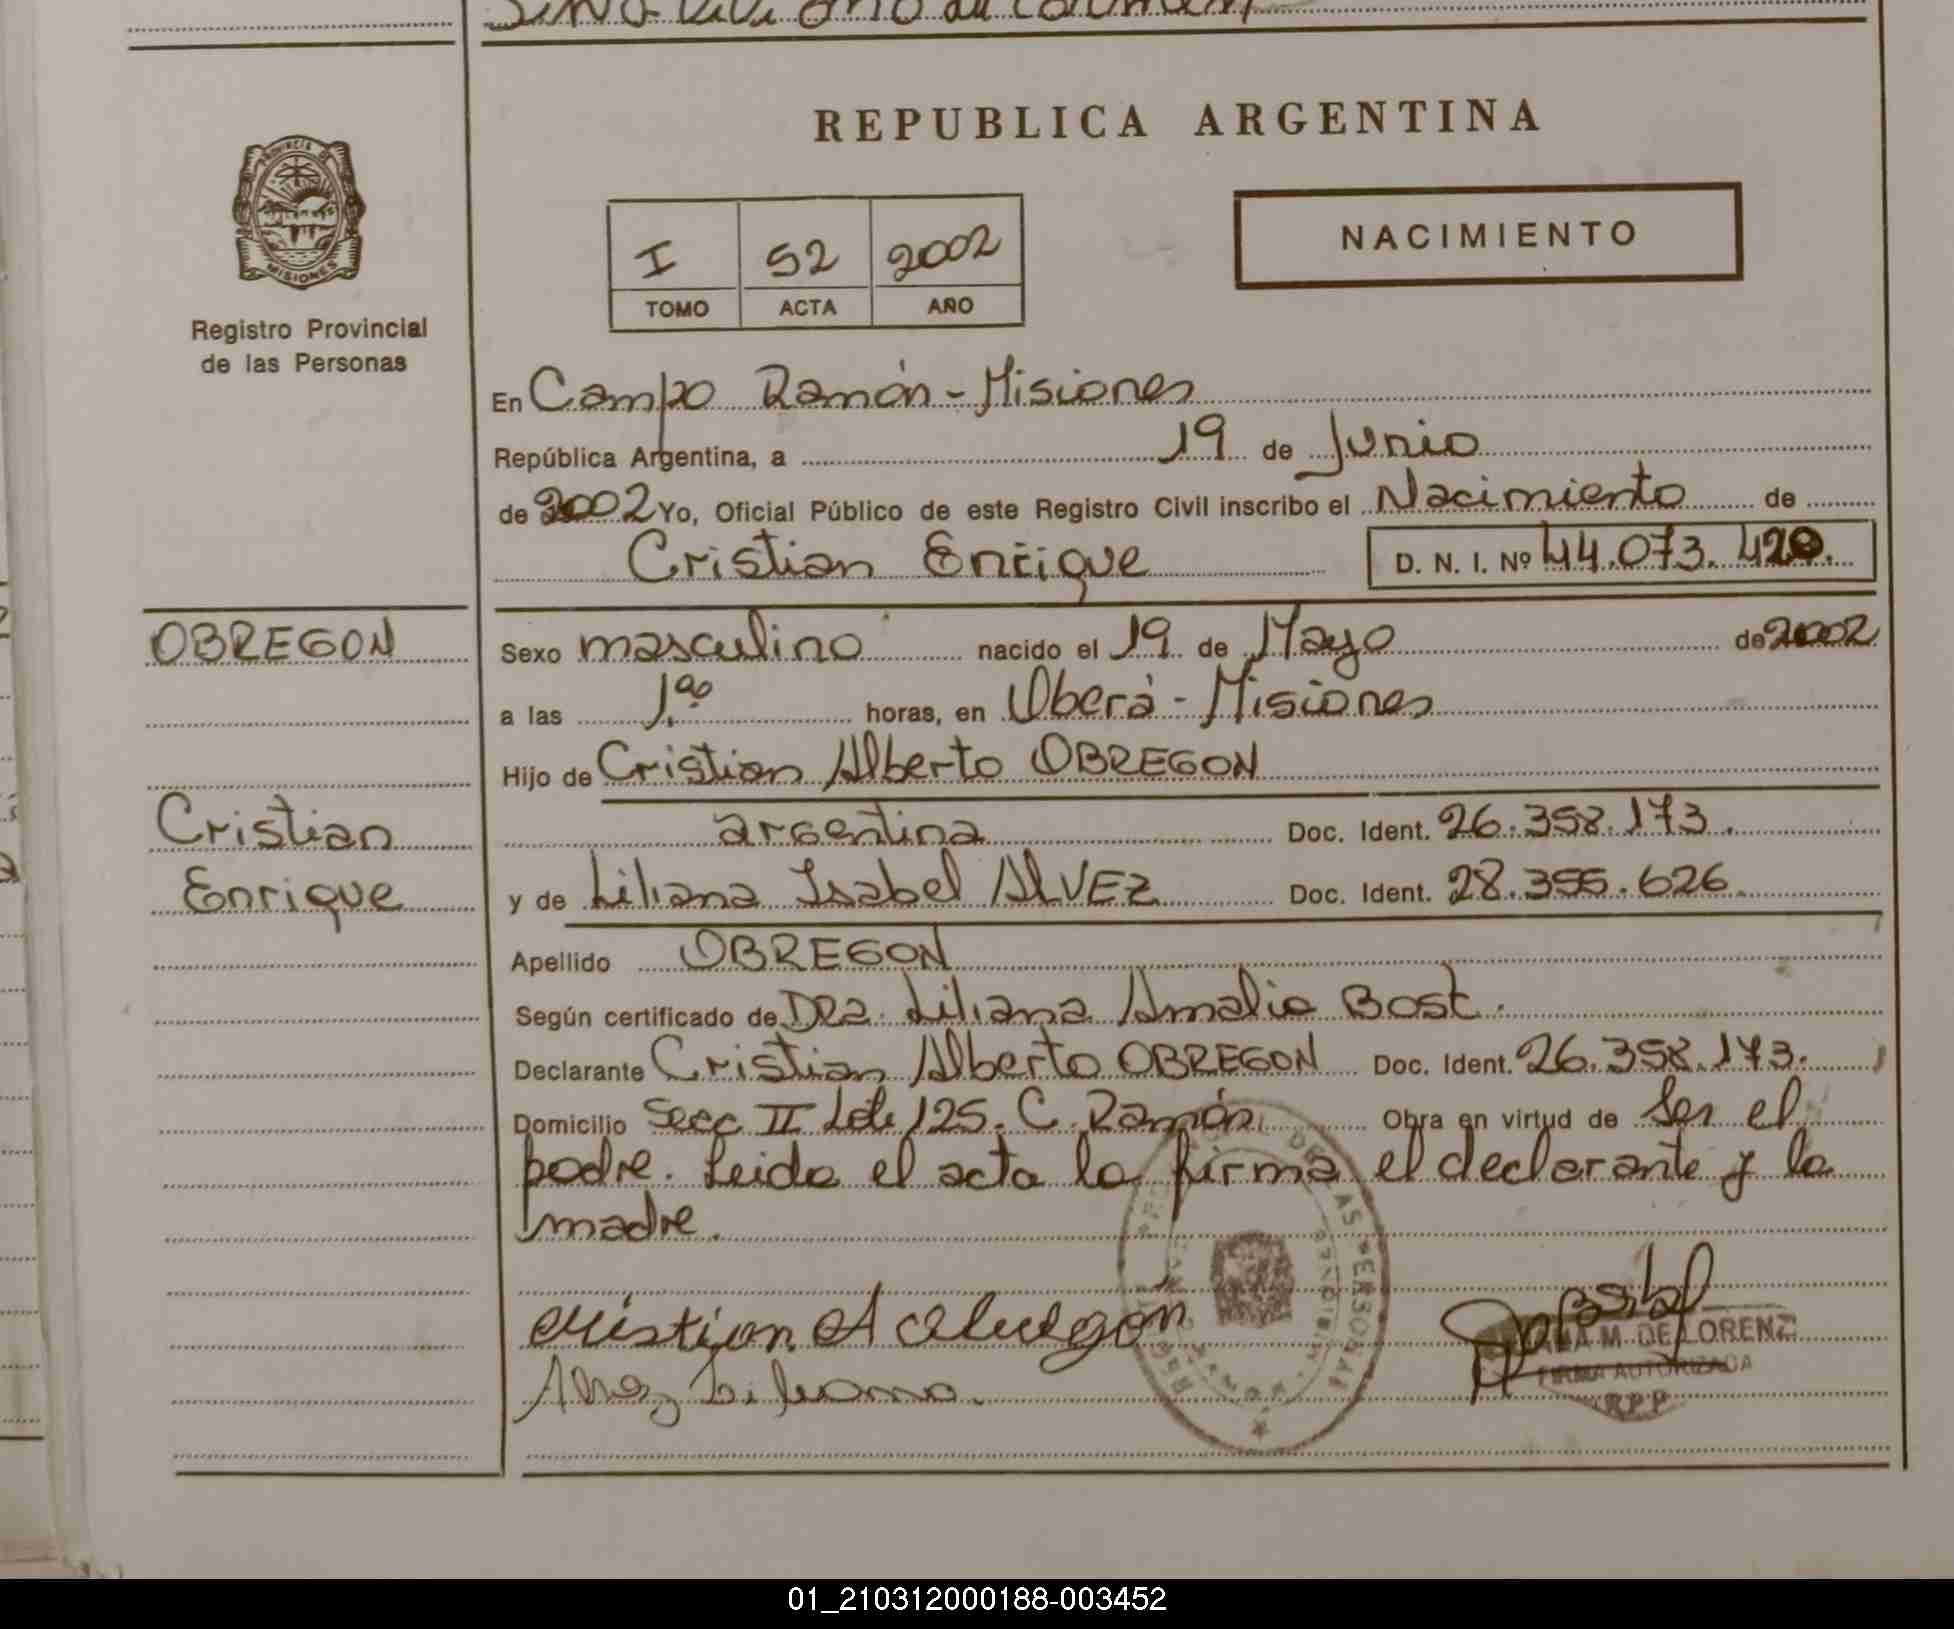 REPUBLICA ARGENTINA
PROVINCIA DE
MISIONES
Registro Provincial
de las Personas
I 52 2002
TOMO ACTA AÑO
NACIMIENTO
En Campo Ramón - Misiones
República Argentina, a 19 de Junio
de 2002 Yo, Oficial Público de este Registro Civil inscribo el Nacimiento de
Cristian Enrique D. N. I. Nº 44.073.420.
OBREGON
Sexo masculino nacido el 19 de Mayo de 2002
a las 1.00 horas, en Oberá - Misiones
Hijo de Cristian Alberto OBREGON
Cristian
argentina Doc. Ident. 26.358.173.
Enrique
y de Liliana Isabel ALVEZ Doc. Ident. 28.355.626.
Apellido OBREGON
Según certificado de Dra. Liliana Amalia Bost.
Declarante Cristian Alberto OBREGON Doc. Ident. 26.358.173.
Domicilio Secc II Lote 125. C. Ramón. Obra en virtud de Ser el
padre. Leida el acta la firma el declarante y la
madre.
Cristian A Obregón
Alvez Liliana.
M. DE LORENZ
FIRMA AUTORIZADA
R.P.P.
01_210312000188-003452